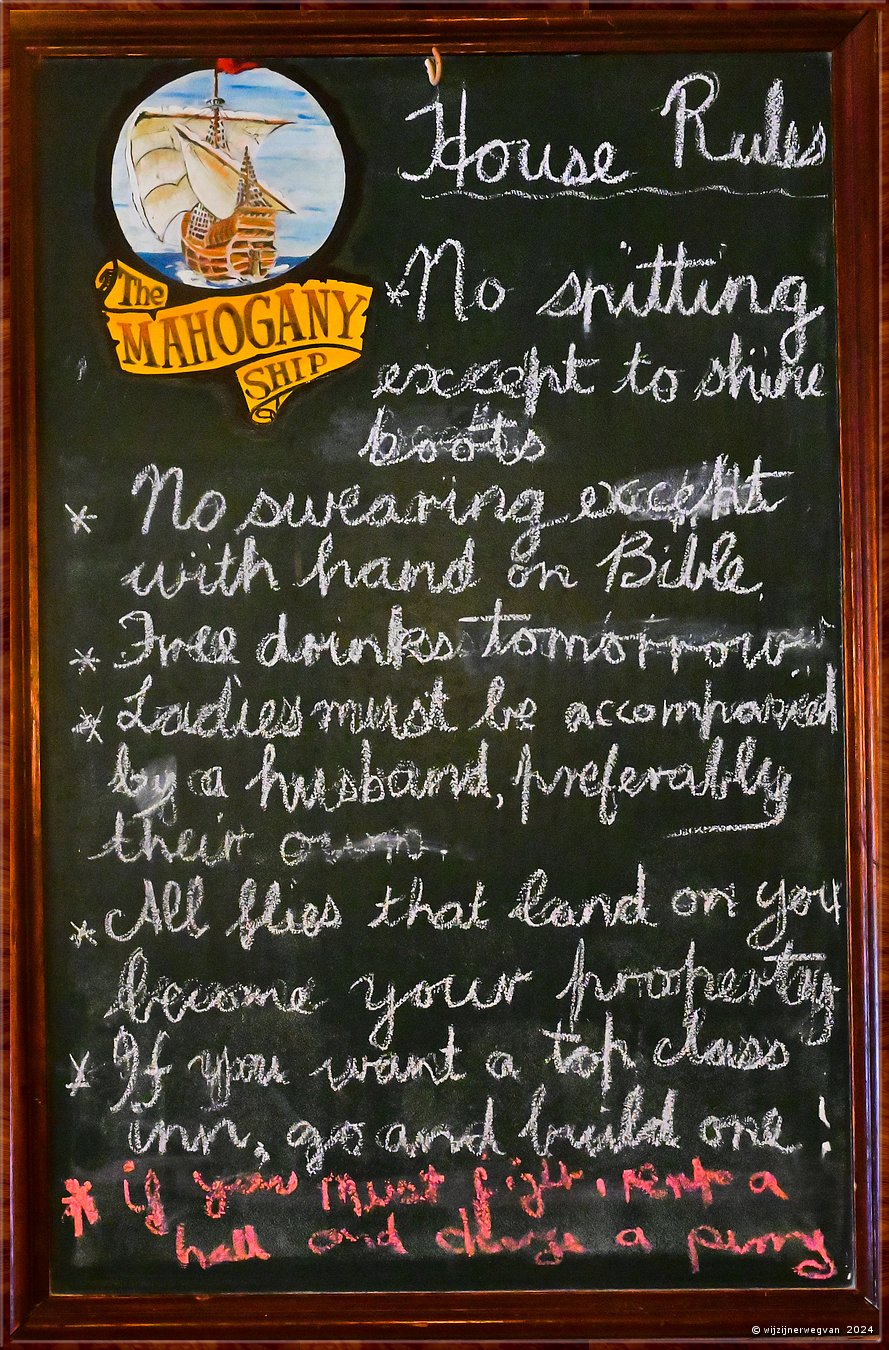 House Rules
The
MAHOGANY
SHIP
* No spitting
except to shine
boots
* No swearing except
with hand on Bible.
* Free drinks tomorrow
* Ladies must be accompanied
by a husband, preferably
their own.
* All flies that land on you
become your property
* If you want a top class
inn, go and build one!
* if you must fight, rent a
hall and charge a penny
© wijzijnerwegvan 2024